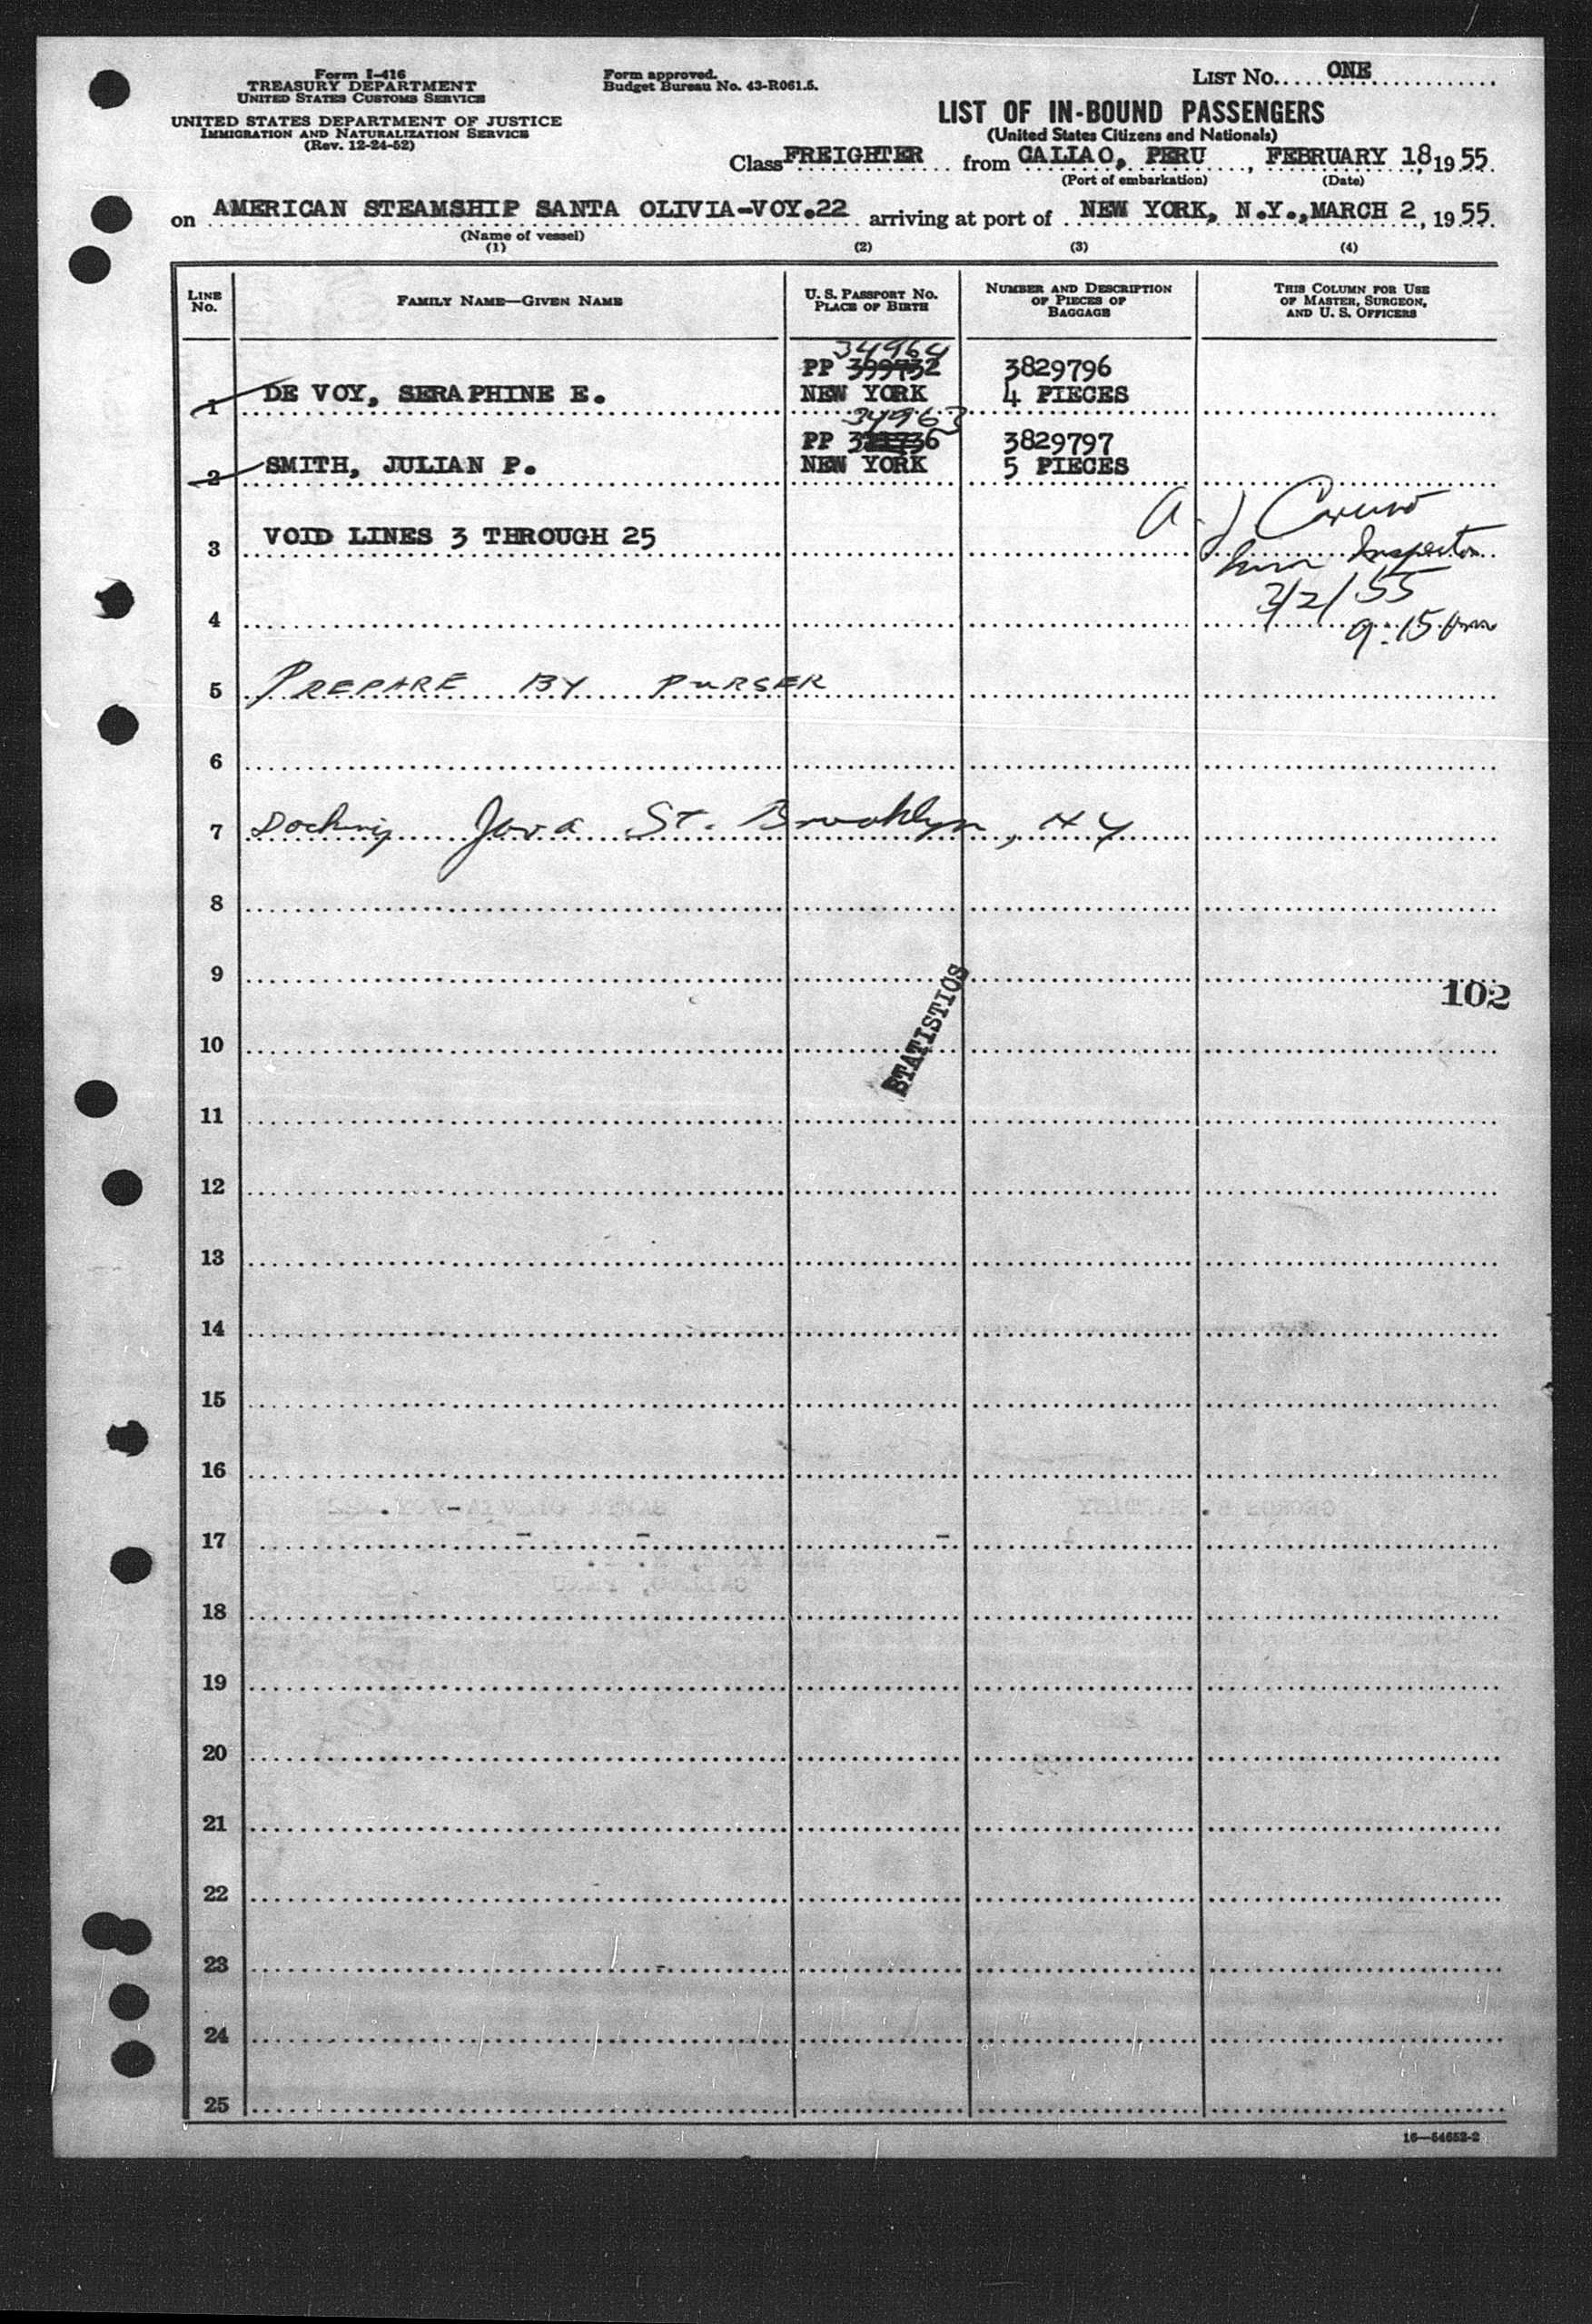 Form I-416
TREASURY DEPARTMENT
UNITED STATES CUSTOMS SERVICE
UNITED STATES DEPARTMENT OF JUSTICE
IMMIGRATION AND NATURALIZATION SERVICE
(Rev. 12-24-52)
Form approved.
Budget Bureau No. 43-R061.5.
LIST No. ONE
LIST OF IN-BOUND PASSENGERS
(United States Citizens and Nationals)
Class FREIGHTER from CALLAO, PERU, FEBRUARY 18, 1955
(Port of embarkation) (Date)
on AMERICAN STEAMSHIP SANTA OLIVIA-VOY.22 arriving at port of NEW YORK, N.Y., MARCH 2, 1955
(Name of vessel)
(1) (2) (3) (4)
LINE No. FAMILY NAME—GIVEN NAME U. S. PASSPORT No. PLACE OF BIRTH NUMBER AND DESCRIPTION OF PIECES OF BAGGAGE THIS COLUMN FOR USE OF MASTER, SURGEON, AND U. S. OFFICERS
34964
PP 399732 3829796
1 DE VOY, SERAPHINE E. NEW YORK 4 PIECES
34963
PP 3829797
2 SMITH, JULIAN P. NEW YORK 5 PIECES
A. J Caruso
3 VOID LINES 3 THROUGH 25
Imm Inspector
3/2/55
4 9:15 am
5 PREPARE BY PURSER
6
7 Docking Java St. Brooklyn, NY
8
9
102
STATISTICS
10
11
12
13
14
15
16
17
18
19
20
21
22
23
24
25
16—54652-2